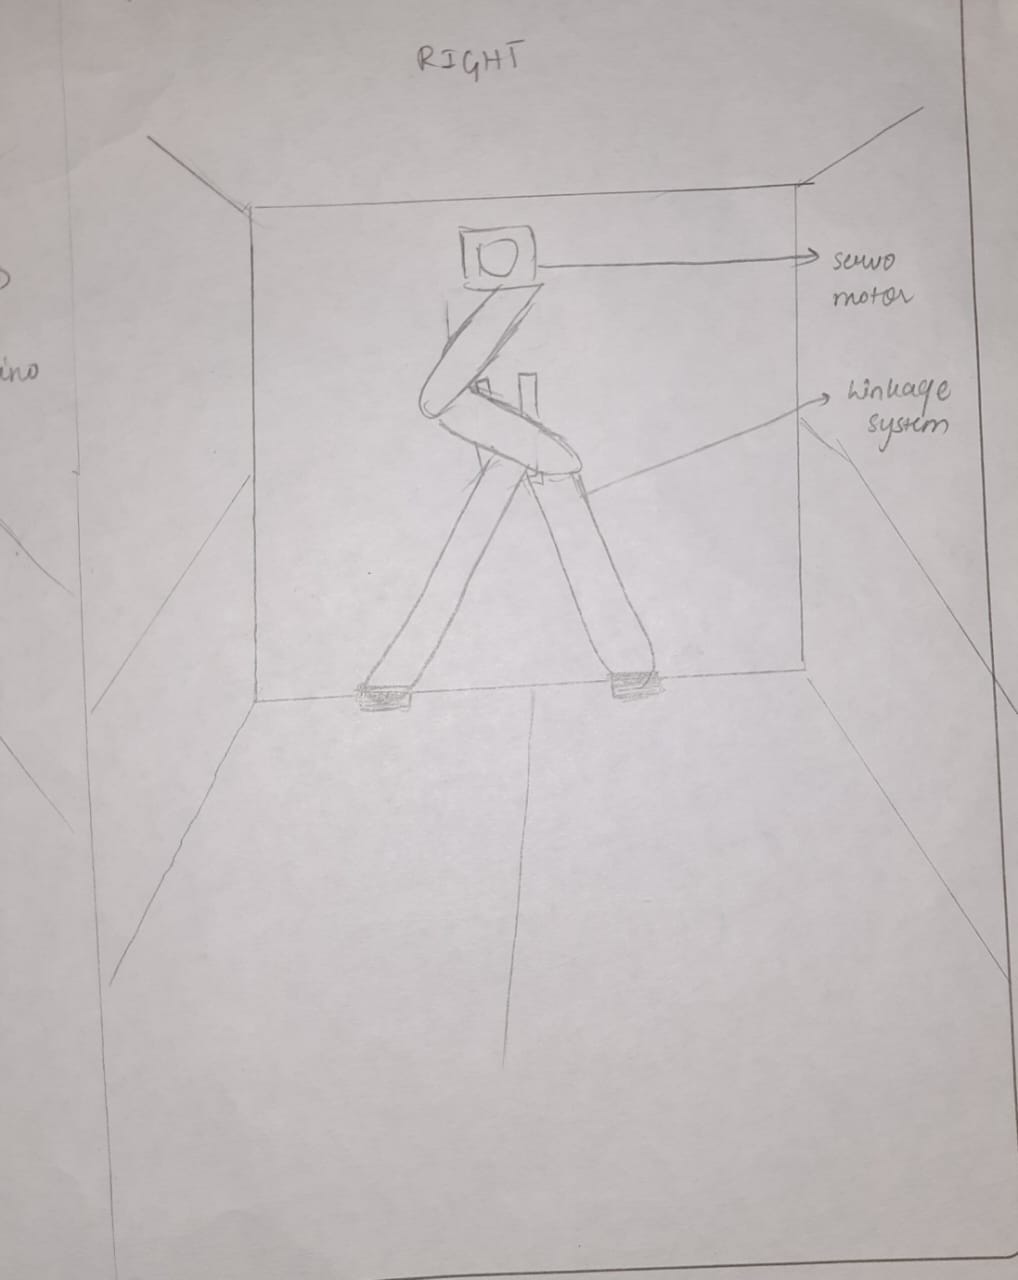 RIGHT
servo
motor
linkage
system